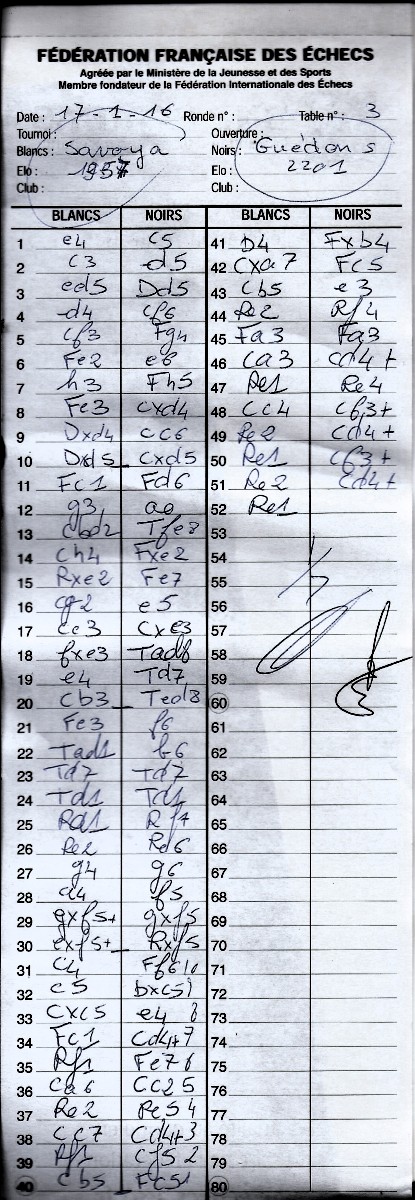 FÉDÉRATION FRANÇAISE DES ÉCHECS
Agréée par le Ministère de la Jeunesse et des Sports
Membre fondateur de la Fédération Internationale des Échecs
Date : 17-1-16 Ronde n° : Table n° : 3
Tournoi : Ouverture :
Blancs : Savoya Noirs : Guédon s
Elo : 1957 Elo : 2201
Club : Club :
BLANCS NOIRS BLANCS NOIRS
1 e4 c5 41 b4 Fxb4
2 c3 d5 42 Cxa7 Fc5
3 ed5 Dd5 43 Cb5 e3
4 d4 Cf6 44 Re2 Rf4
5 Cf3 Fg4 45 Fa3 Fa3
6 Fe2 e6 46 Ca3 Cd4+
7 h3 Fh5 47 Re1 Re4
8 Fe3 cxd4 48 Cc4 Cf3+
9 Dxd4 Cc6 49 Re2 Cd4+
10 Dxd5 Cxd5 50 Re1 Cf3+
11 Fc1 Fd6 51 Re2 Cd4+
12 g3 52 Re1
13 Cbd2 Tfe8 53
14 Ch4 Fxe2 54
15 Rxe2 Fe7 55
16 Cg2 e5 56
17 Ce3 Cxe3 57
18 fxe3 Tad8 58
19 e4 Td7 59
20 Cb3 Ted8 60
21 Fe3 f6 61
22 Tad1 b6 62
23 Td7 Td7 63
24 Td1 Td1 64
25 Rd1 Rf7 65
26 Re2 Re6 66
27 g4 g6 67
28 a4 f5 68
29 gxf5+ gxf5 69
30 exf5+ Rxf5 70
31 c4 Ff6 10 71
32 c5 bxc5 72
33 Cxc5 e4 8 73
34 Fc1 Cd4+7 74
35 Rf1 Fe7 6 75
36 Ca6 Cc2 5 76
37 Re2 Re5 4 77
38 Cc7 Cd4+3 78
39 Rf1 Cf5 2 79
40 Cb5 Fc5 1 80